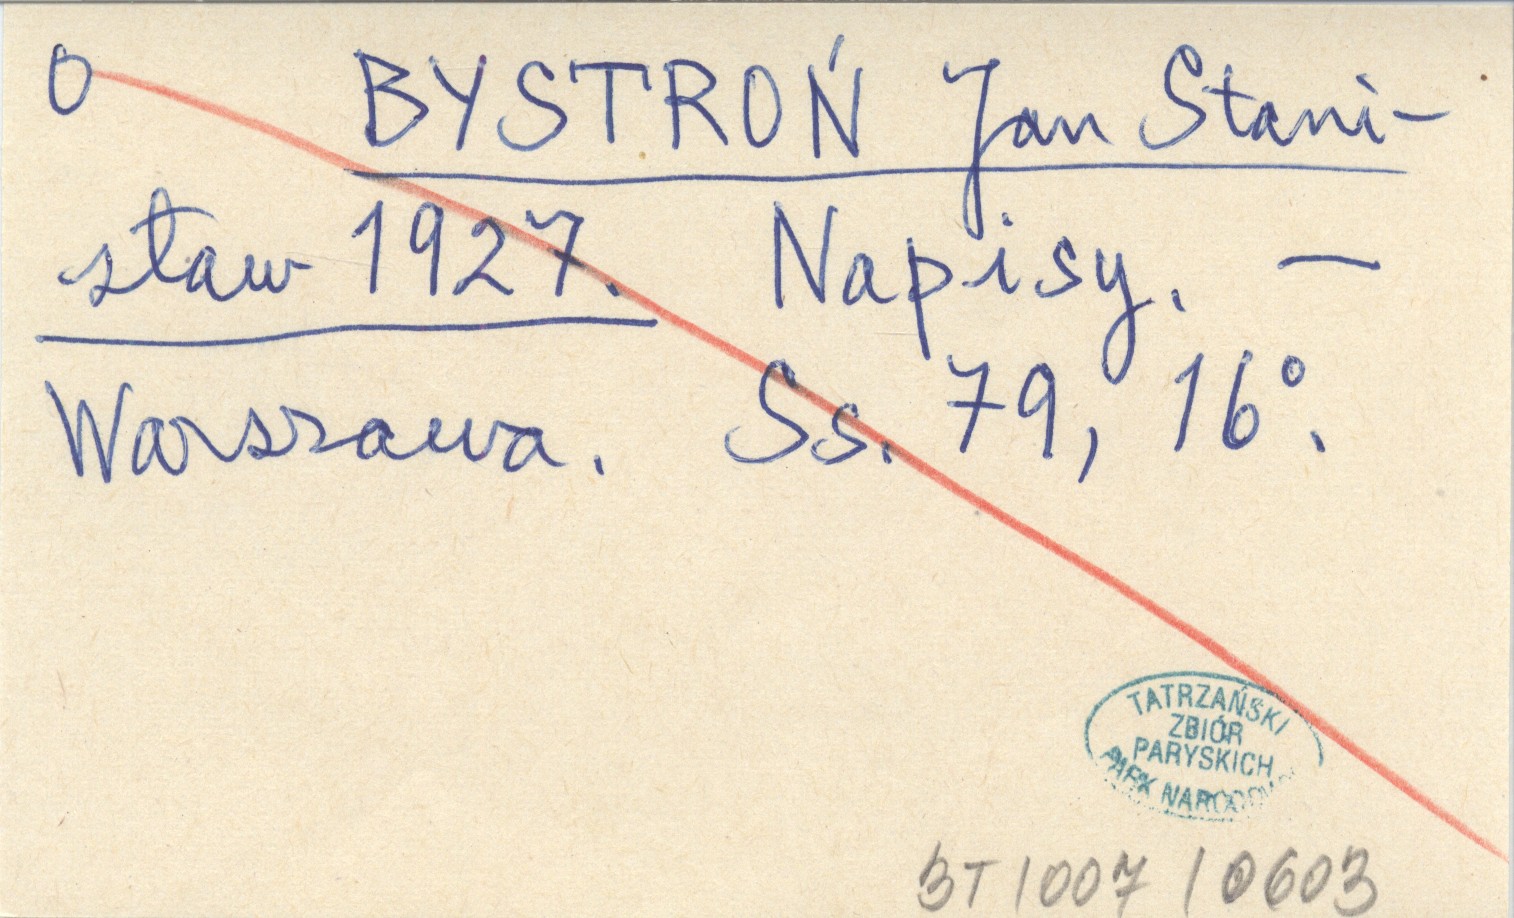 O BYSTROŃ Jan Stani-
sław 1927. Napisy. —
Warszawa. Ss. 79, 16°.
TATRZAŃSKI
ZBIÓR
PARYSKICH
PARK NARODOWY
BT/007/0603